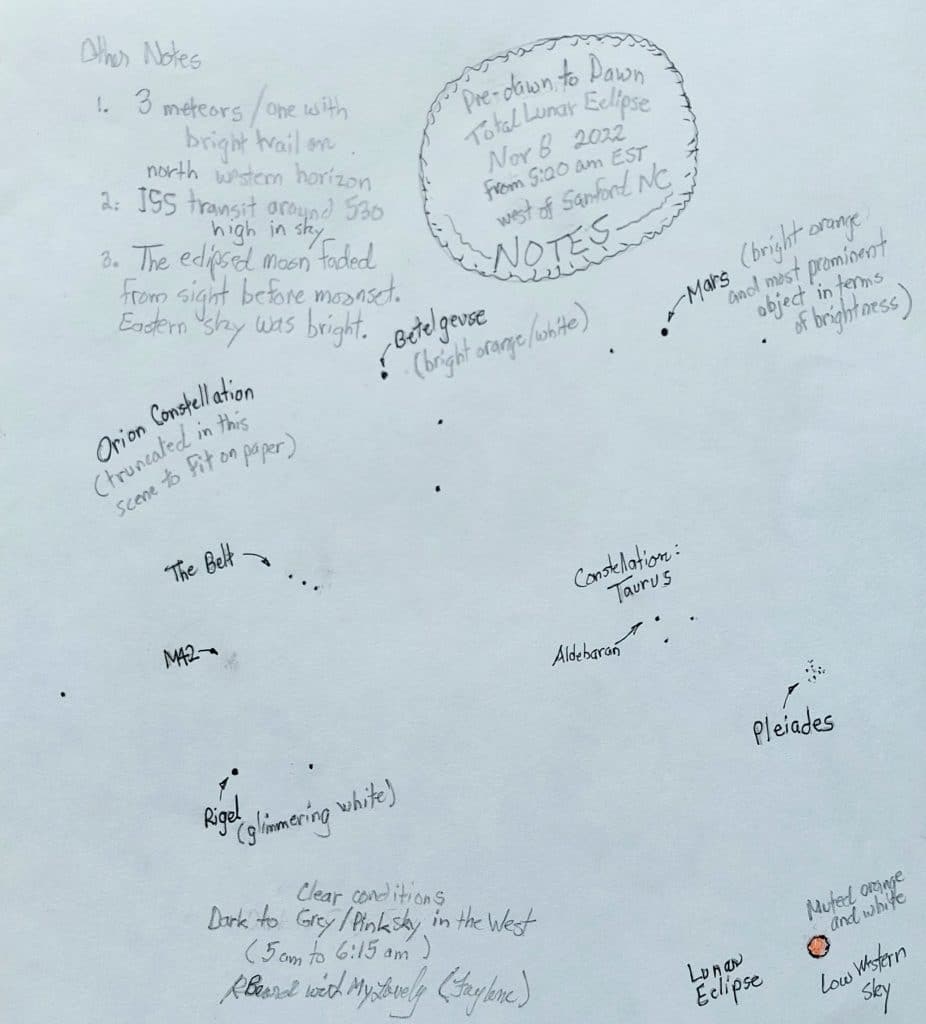 Other Notes
1. 3 meteors/one with
bright trail on
north western horizon
2. ISS transit around 530
high in sky
3. The eclipsed moon faded
from sight before moonset.
Eastern sky was bright.
Pre-dawn to Dawn
Total Lunar Eclipse
Nov 8 2022
from 5:20 am EST
west of Sanford NC
NOTES
Mars (bright orange
and most prominent
object in terms
of brightness)
Betelgeuse
(bright orange/white)
Orion Constellation
(truncated in this
scene to fit on paper)
The Belt
M42
Constellation:
Taurus
Aldebaran
Pleiades
Rigel
(glimmering white)
Clear conditions
Dark to Grey/Pink sky in the West
(5am to 6:15 am)
RBeard with My Lovely
Muted orange
and white
Lunar
Eclipse
Low Western
Sky